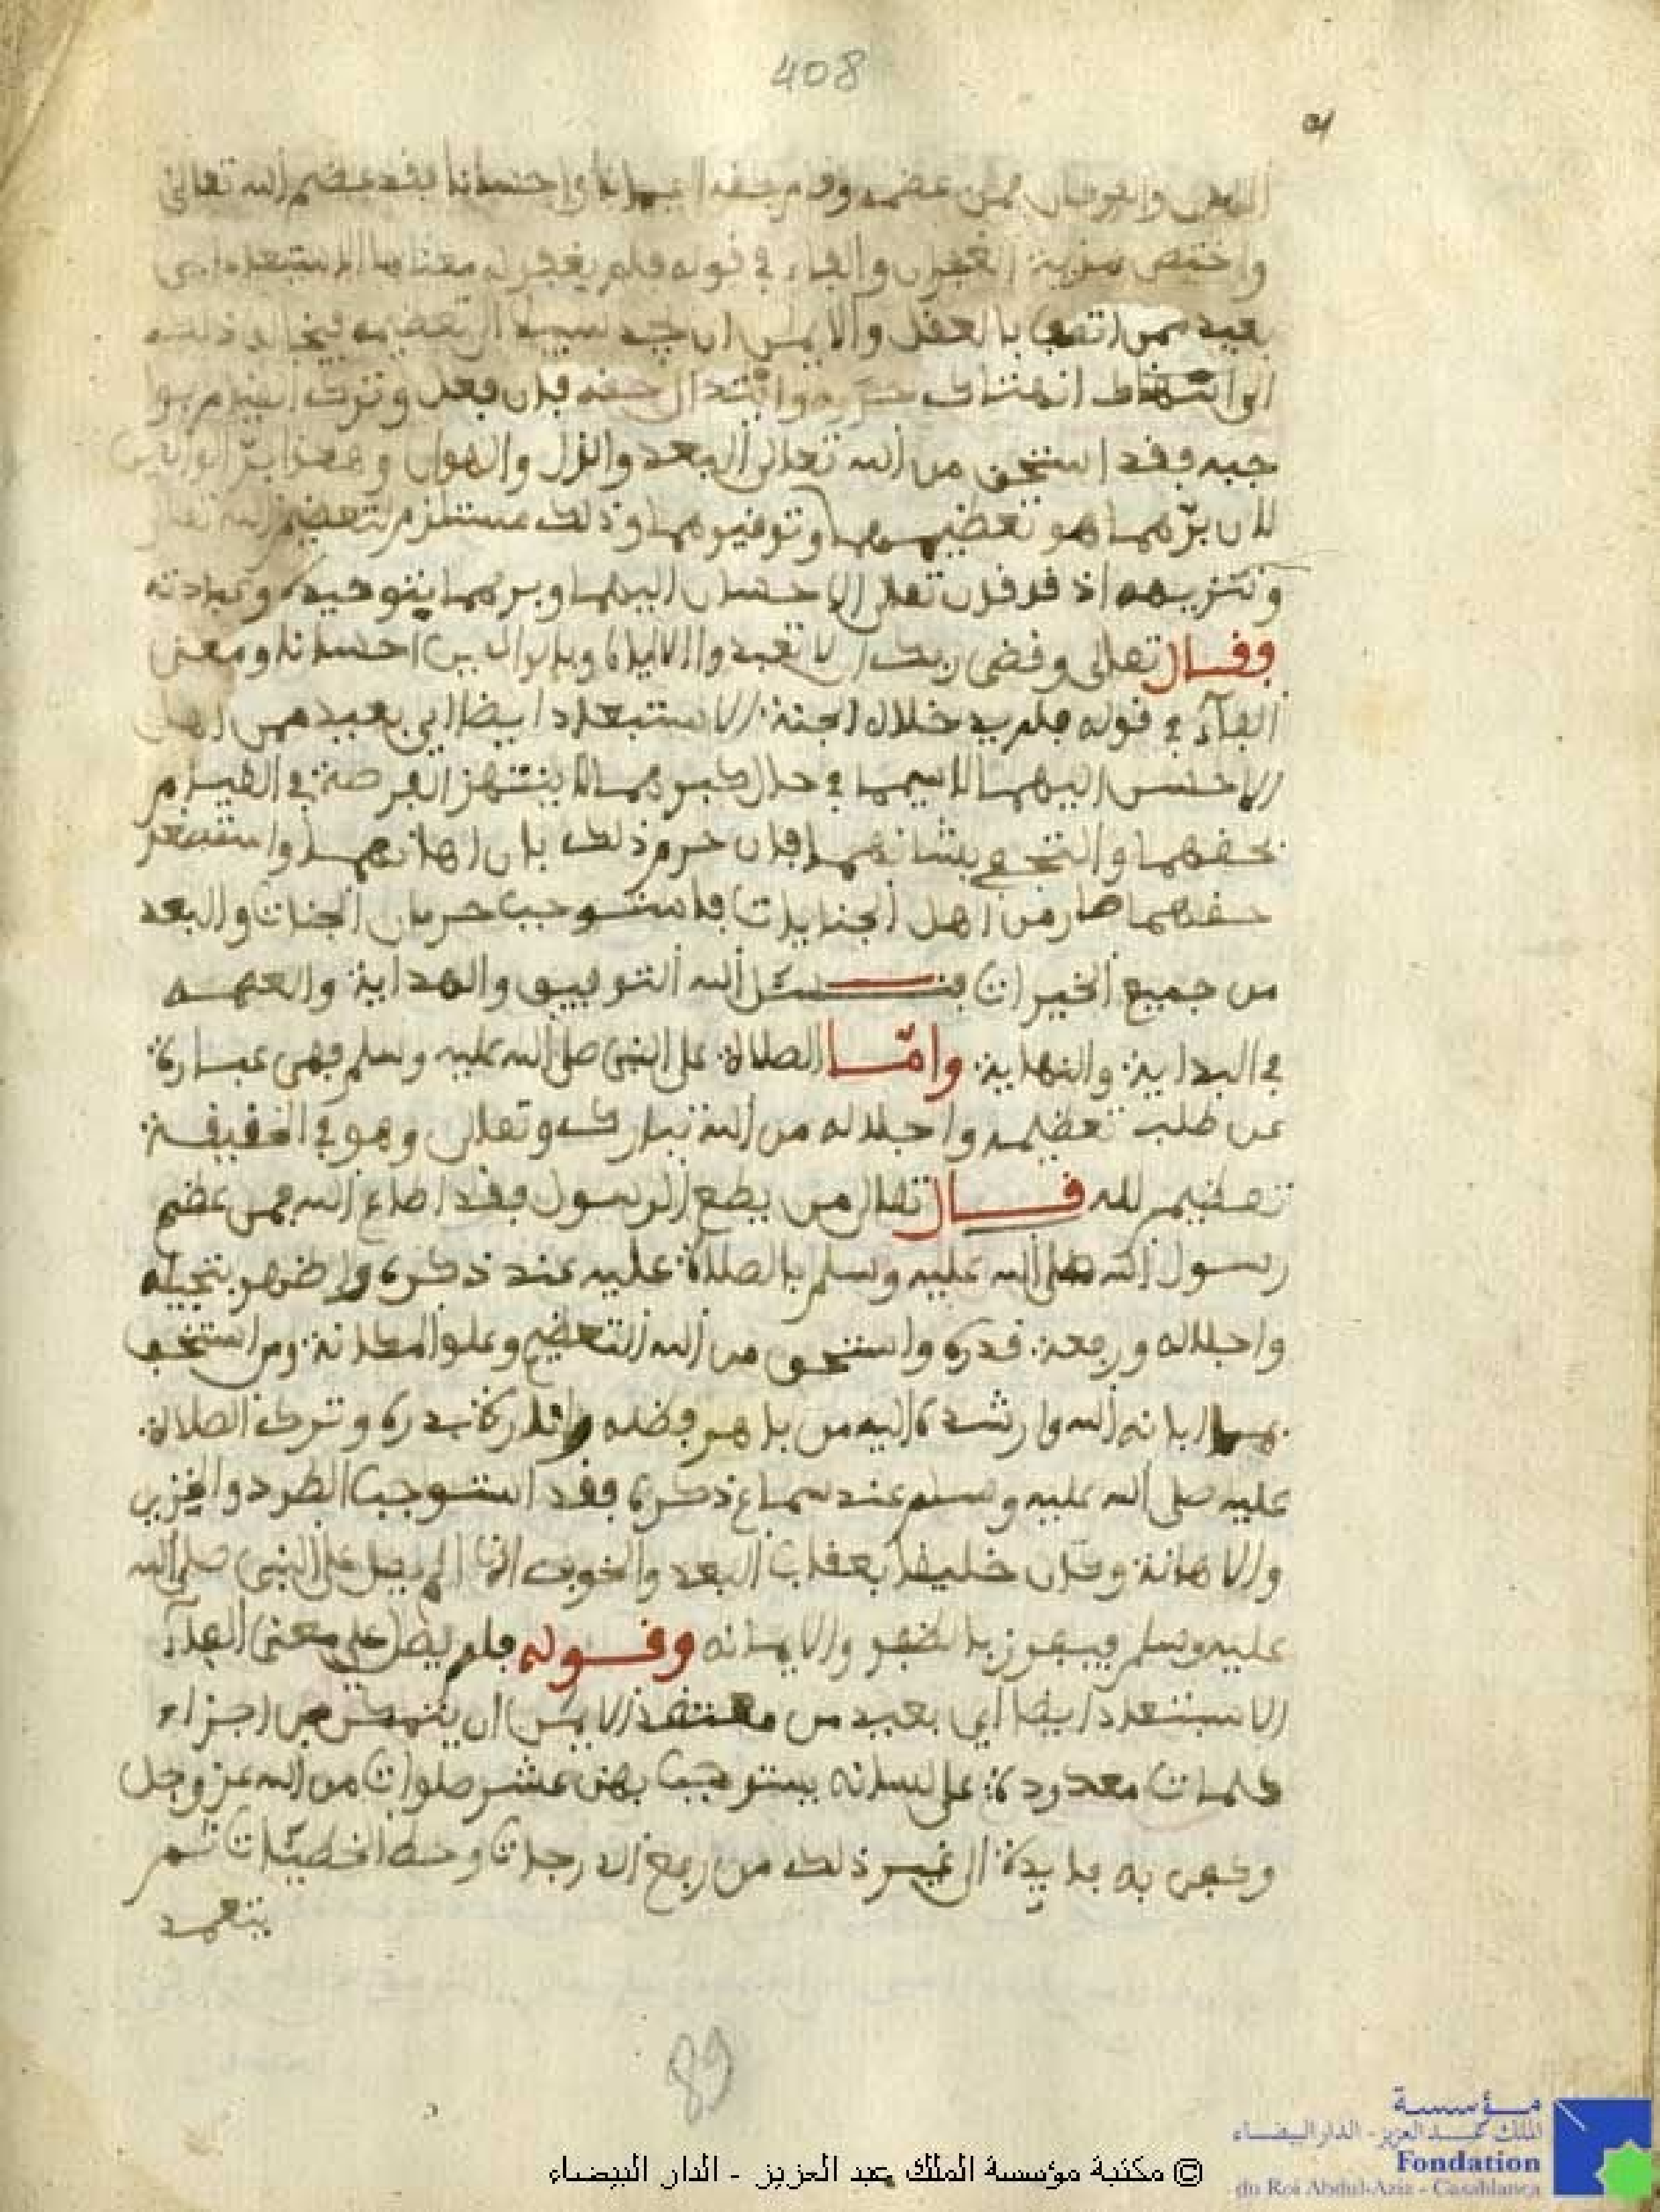 408
وعضمه وقام بحقه ايمانا واحتسابا فقد عضم الله تعالى
واختص بمزية الغفران والفاء في قوله فلم يغفر له معناها الاستبعاد اي
بعيد ممن اتصف بالعقل والايمان ان يجد سبيلا الى تعضيمه
فان فعل وترك القيام بوا
جبه فقد استحق من الله تعالى البعد والذل والهوان وهكذا بر الوالدين
لان برّهما هو تعضيمهما وتوفيرهما وذلك مستلزم لتعضيم الله تعالى
وتنزيهه اذ قد قرن تعلى الاحسان اليهما وبرهما بتوحيده وعبادته
وقال تعلى وقضى ربك ان لا تعبدوا الا اياه وبالوالدين احسانا ومعنى
الفآء في قوله فلم يدخلاه الجنة الاستبعاد ايضا اي بعيد ممن
الاحسان اليهما لاسيما في حال كبرهما الا ينتهز الفرصة في القيام
بحقهما والتحفي بشانهما فان حرم ذلك بان اهانهما واستصغر
حقهما صار من اهل الجنايات فاستوجب حرمان الجنات والبعد
من جميع الخيرات فنسئل الله التوفيق والهداية والعصمه
في البداية والنهاية وامّا الصلاة على النبى صلى الله عليه وسلم فهى عبارة
عن طلب تعضيمه واجلاله من الله تبارك وتعلى وهو في الحقيقة
تعضيم لله قال تعالى من يطع الرسول فقد اطاع الله فمن عضم
رسول الله صلى الله عليه وسلم بالصلاة عليه عند ذكره واضهر بتبجيله
واجلاله ورفعة قدره واستحق من الله التعضيم وعلوا المكانة ومن استخف
بها ابانه الله وارشده اليه من باهر فضله وانارة بدره وترك الصلاة
عليه صلى الله عليه وسلم عند سماع ذكره فقد استوجب الطرد والخزي
والاهانة وكان خليفا بعقاب البعد والخوف اذا لم يصل على النبى صلى الله
عليه وسلم فيفوز بالضفر والايمانه وقوله فلم يصل على معنى الفآء
الاستبعاد ايضا اي بعيد من معتقد الايمان ان يتمكن من اجزاء
كلمات معدودة على لسانه يستوجب بهن عشر صلوات من الله عز وجل
وكفى به فايدة الى غير ذلك من رفع الدرجات وحط الخطيّات ثم
يتعمد
89
© مكتبة مؤسسة الملك عبد العزيز - الدار البيضاء
مؤسسة
الملك عبد العزيز - الدار البيضاء
Fondation
du Roi Abdul-Aziz - Casablanca